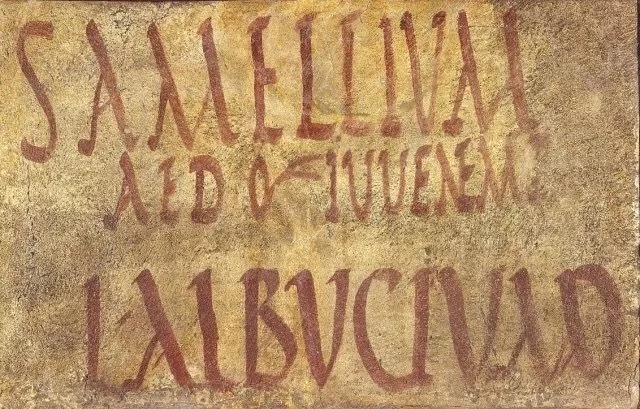 SAMELLIVM
AED OF IVVENEM
L ALBVCIVM AD